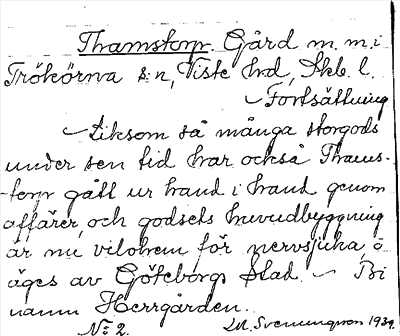 Thamstorp. Gård m. m. i
Trökörna s:n, Viste hrd, Skb. l.
Fortsättning
Liksom så många storgods
under sen tid har också Thams-
torp gått ur hand i hand genom
affärer, och godsets huvudbyggning
är nu vilohem för nervsjuka, o
äges av Göteborgs Stad. — Bi
namn Herrgården.
No 2. LM. Svenungson 1939.